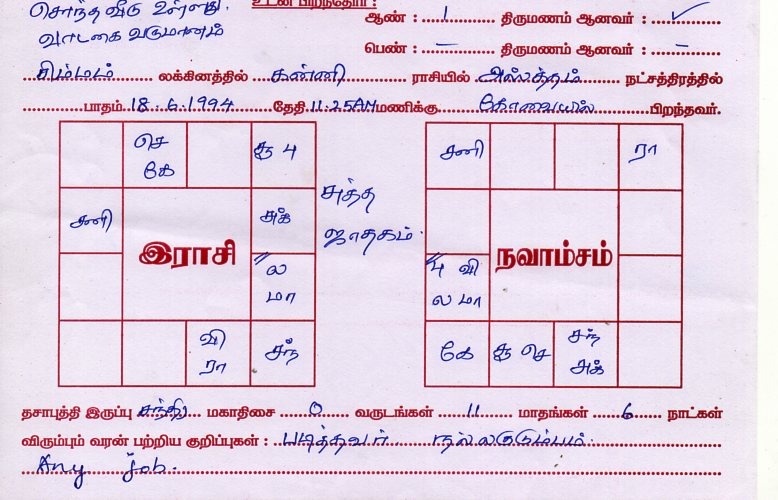 சொந்த வீடு உள்ளது.
உடன் பிறந்தோர் :
ஆண் : 1 திருமணம் ஆனவர் : ✓
வாடகை வருமானம்
பெண் : – திருமணம் ஆனவர் : –
சிம்மம் லக்கினத்தில் கன்னி ராசியில் அஸ்த்தம் நட்சத்திரத்தில்
பாதம் 18.6.1994 தேதி 11.25AM மணிக்கு கோவையில் பிறந்தவர்.
செ கு பு சனி ரா
கே
சனி அக் சுத்த
ஜாதகம்.
இராசி நவாம்சம்
ல பு வி
மா ல மா
வி சந் கே கு செ சந்
ரா அக்
தசாபுத்தி இருப்பு சந்திர மகாதிசை 0 வருடங்கள் 11 மாதங்கள் 6 நாட்கள்
விரும்பும் வரன் பற்றிய குறிப்புகள் : படித்தவர் நல்லகுடும்பம்.
Any Job.